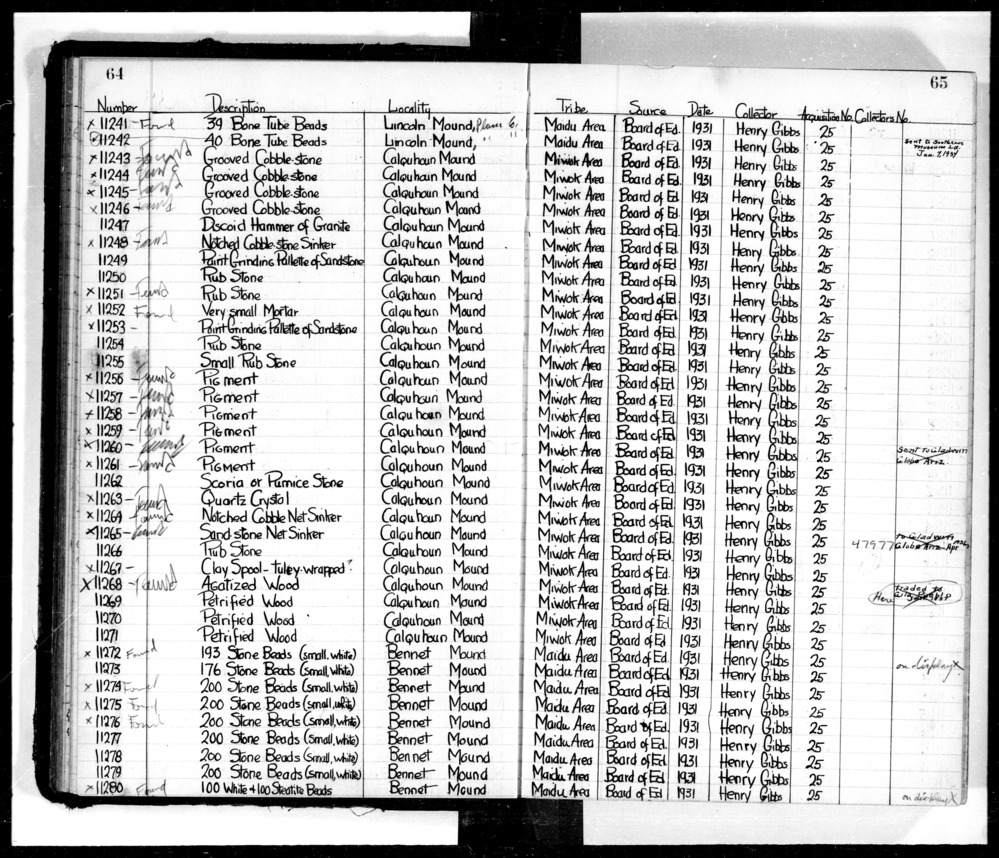 64
65
Number Description Locality Tribe Source Date Collector Acquisition No. Collectors No.
x 11241 - Found 39 Bone Tube Beads Lincoln Mound, Maidu Area Board of Ed. 1931 Henry Gibbs 25
11242 40 Bone Tube Beads Lincoln Mound, " " Maidu Area Board of Ed. 1931 Henry Gibbs 25 Sent to Southern Museum L.A. Jan. 7, 1934
x 11243 - Found Grooved Cobble-stone Calquhoun Mound Miwok Area Board of Ed. 1931 Henry Gibbs 25
x 11244 - Found Grooved Cobble-stone Calquhoun Mound Miwok Area Board of Ed. 1931 Henry Gibbs 25
x 11245 - Found Grooved Cobble-stone Calquhoun Mound Miwok Area Board of Ed. 1931 Henry Gibbs 25
x 11246 - Found Grooved Cobble-stone Calquhoun Mound Miwok Area Board of Ed. 1931 Henry Gibbs 25
11247 Discoid Hammer of Granite Calquhoun Mound Miwok Area Board of Ed. 1931 Henry Gibbs 25
x 11248 - Found Notched Cobble-stone Sinker Calquhoun Mound Miwok Area Board of Ed. 1931 Henry Gibbs 25
11249 Paint Grinding Pallette of Sandstone Calquhoun Mound Miwok Area Board of Ed. 1931 Henry Gibbs 25
11250 Rub Stone Calquhoun Mound Miwok Area Board of Ed. 1931 Henry Gibbs 25
x 11251 - Found Rub Stone Calquhoun Mound Miwok Area Board of Ed. 1931 Henry Gibbs 25
x 11252 Found Very small Mortar Calquhoun Mound Miwok Area Board of Ed. 1931 Henry Gibbs 25
x 11253 - Paint Grinding Pallette of Sandstone Calquhoun Mound Miwok Area Board of Ed. 1931 Henry Gibbs 25
11254 Rub Stone Calquhoun Mound Miwok Area Board of Ed. 1931 Henry Gibbs 25
11255 Small Rub Stone Calquhoun Mound Miwok Area Board of Ed. 1931 Henry Gibbs 25
x 11256 - Found Pigment Calquhoun Mound Miwok Area Board of Ed. 1931 Henry Gibbs 25
x 11257 - Found Pigment Calquhoun Mound Miwok Area Board of Ed. 1931 Henry Gibbs 25
x 11258 - Found Pigment Calquhoun Mound Miwok Area Board of Ed. 1931 Henry Gibbs 25
x 11259 - Found Pigment Calquhoun Mound Miwok Area Board of Ed. 1931 Henry Gibbs 25
x 11260 - Found Pigment Calquhoun Mound Miwok Area Board of Ed. 1931 Henry Gibbs 25 Sent to Gladwin Globe Ariz.
x 11261 - Found Pigment Calquhoun Mound Miwok Area Board of Ed. 1931 Henry Gibbs 25
11262 Scoria or Pumice Stone Calquhoun Mound Miwok Area Board of Ed. 1931 Henry Gibbs 25
x 11263 - Found Quartz Crystal Calquhoun Mound Miwok Area Board of Ed. 1931 Henry Gibbs 25
x 11264 - Found Notched Cobble Net Sinker Calquhoun Mound Miwok Area Board of Ed. 1931 Henry Gibbs 25
x 11265 - Found Sand stone Net Sinker Calquhoun Mound Miwok Area Board of Ed. 1931 Henry Gibbs 25 To Gladwin
11266 Rub Stone Calquhoun Mound Miwok Area Board of Ed. 1931 Henry Gibbs 25 47977 Globe Ariz. Apr
x 11267 - Clay Spool - tuley-wrapped? Calquhoun Mound Miwok Area Board of Ed. 1931 Henry Gibbs 25
x 11268 - Found Agatized Wood Calquhoun Mound Miwok Area Board of Ed. 1931 Henry Gibbs 25 traded to
11269 Petrified Wood Calquhoun Mound Miwok Area Board of Ed. 1931 Henry Gibbs 25 Here
11270 Petrified Wood Calquhoun Mound Miwok Area Board of Ed. 1931 Henry Gibbs 25
11271 Petrified Wood Calquhoun Mound Miwok Area Board of Ed. 1931 Henry Gibbs 25
x 11272 Found 193 Stone Beads (small, white) Bennet Mound Maidu Area Board of Ed. 1931 Henry Gibbs 25
11273 176 Stone Beads (small, white) Bennet Mound Maidu Area Board of Ed. 1931 Henry Gibbs 25 on display X
x 11274 Found 200 Stone Beads (small, white) Bennet Mound Maidu Area Board of Ed. 1931 Henry Gibbs 25
x 11275 Found 200 Stone Beads (small, white) Bennet Mound Maidu Area Board of Ed. 1931 Henry Gibbs 25
x 11276 Found 200 Stone Beads (small, white) Bennet Mound Maidu Area Board of Ed. 1931 Henry Gibbs 25
11277 200 Stone Beads (small, white) Bennet Mound Maidu Area Board of Ed. 1931 Henry Gibbs 25
11278 200 Stone Beads (small, white) Bennet Mound Maidu Area Board of Ed. 1931 Henry Gibbs 25
11279 200 Stone Beads (small, white) Bennet Mound Maidu Area Board of Ed. 1931 Henry Gibbs 25
x 11280 Found 100 White + 100 Steatite Beads Bennet Mound Maidu Area Board of Ed. 1931 Henry Gibbs 25 on display X